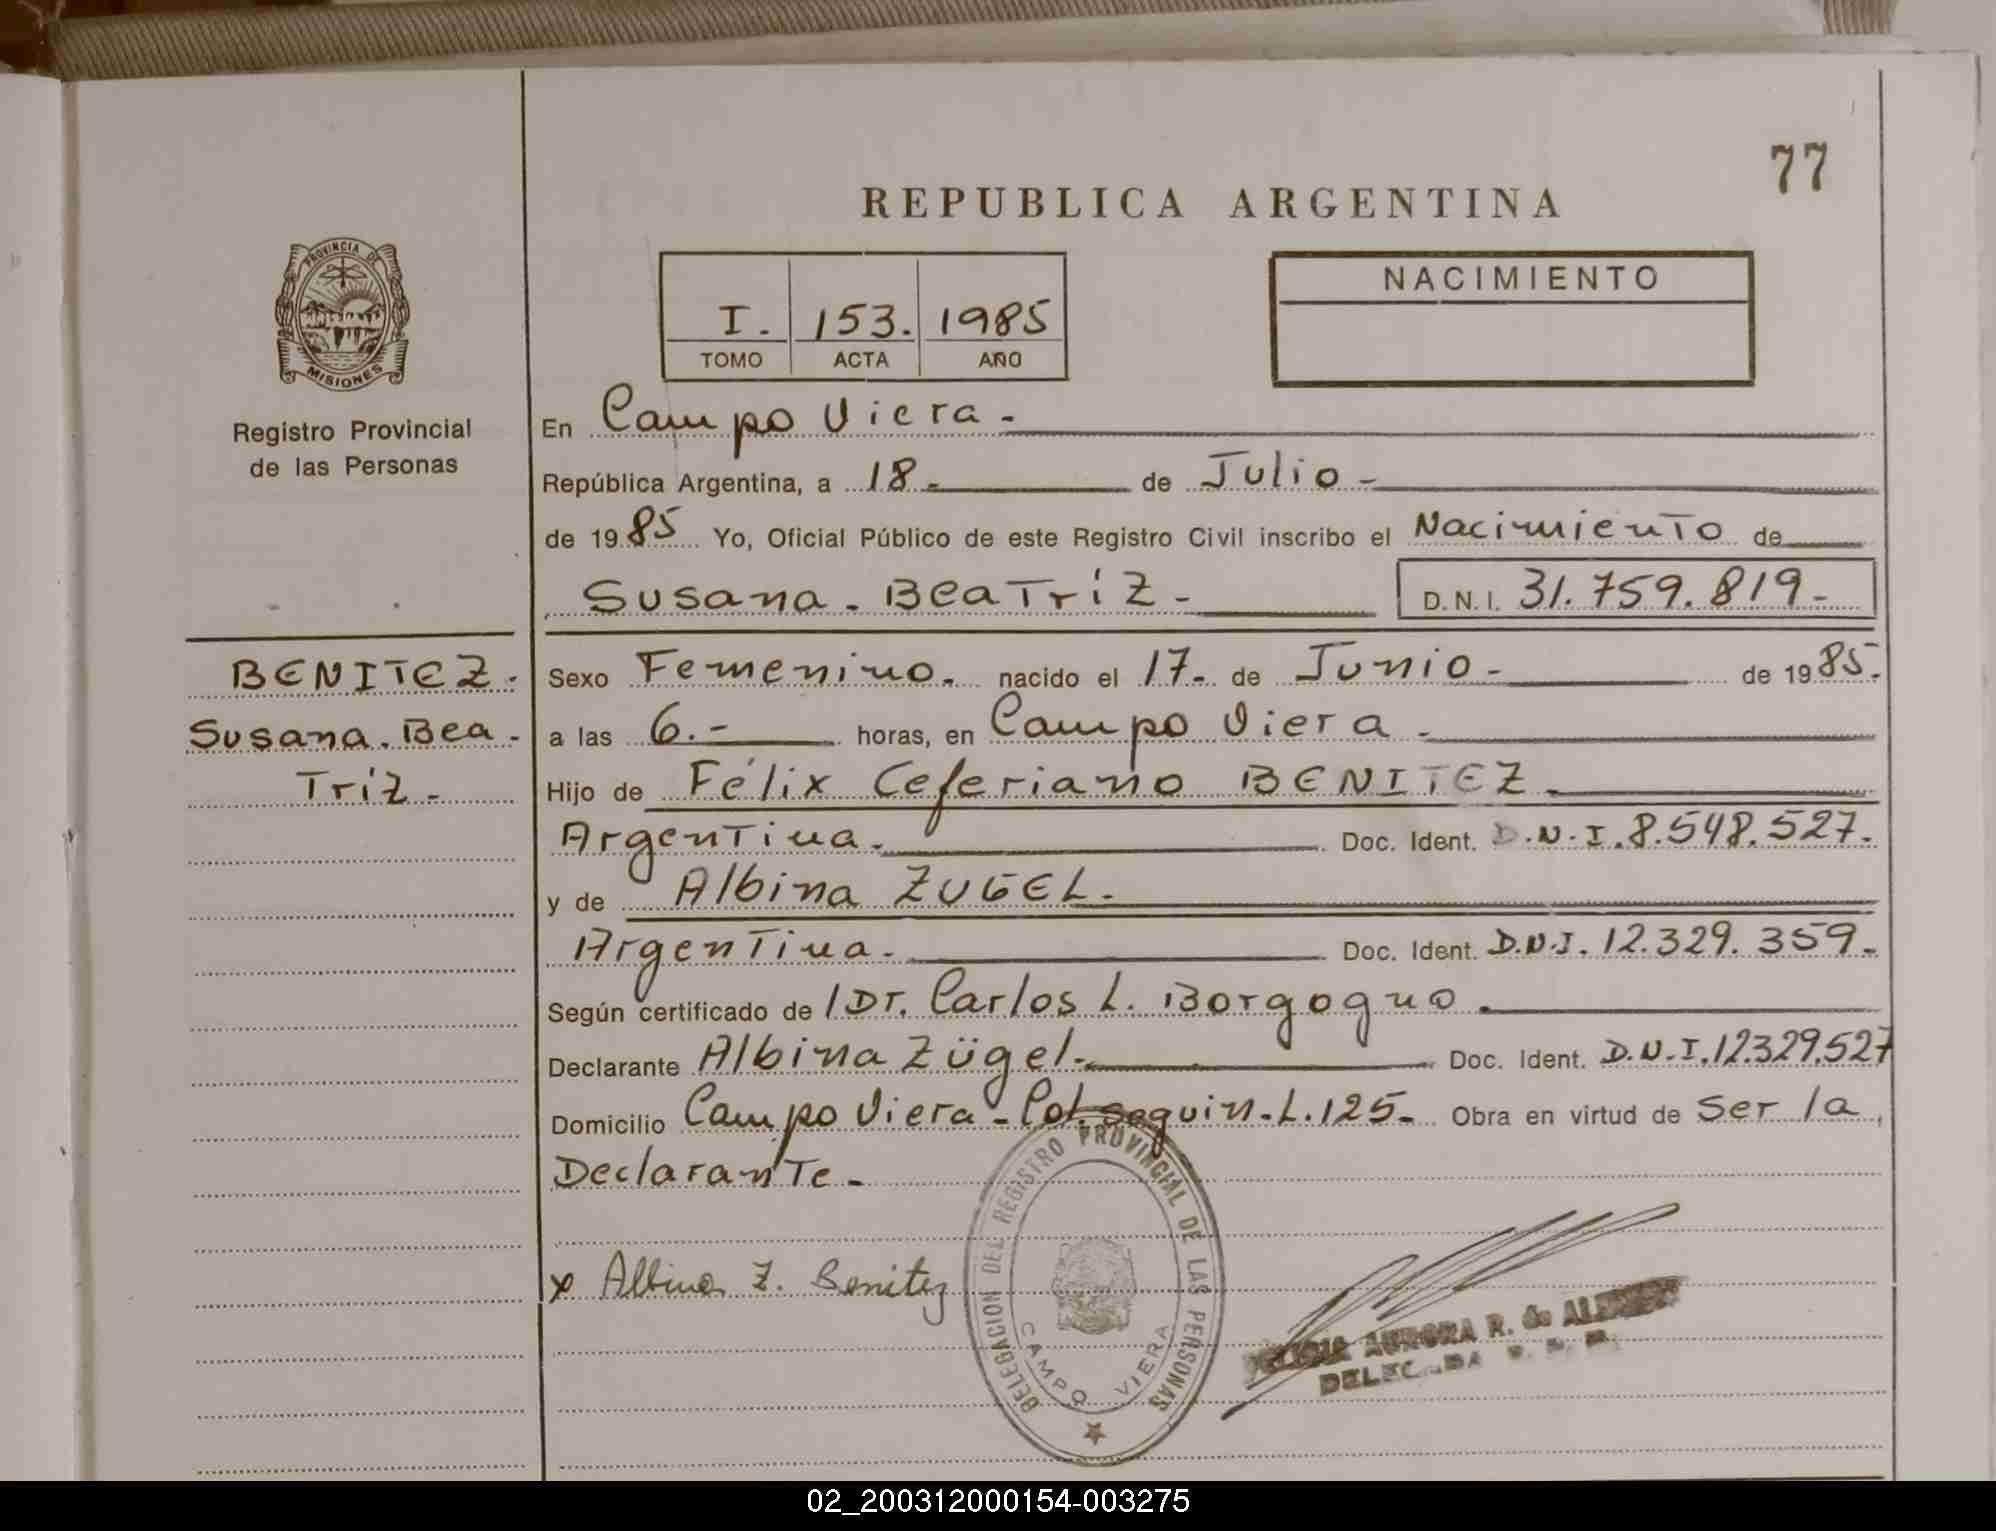 77
REPUBLICA ARGENTINA
PROVINCIA DE
MISIONES
Registro Provincial
de las Personas
I. 153. 1985
TOMO ACTA AÑO
NACIMIENTO
En Campo Viera -
República Argentina, a 18 - de Julio -
de 1985 Yo, Oficial Público de este Registro Civil inscribo el Nacimiento de
Susana. Beatríz - D.N.I. 31.759.819 -
BENITEZ.
Susana. Bea -
Tríz -
Sexo Femenino. nacido el 17 - de Junio - de 1985.
a las 6. - horas, en Campo Viera -
Hijo de Félix Ceferiano BENITEZ -
Argentina. Doc. Ident. D.N.I. 8.548.527.
y de Albina ZUGEL.
Argentina. Doc. Ident. D.N.I. 12.329.359 -
Según certificado de / Dr. Carlos L. Borgogno.
Declarante Albina Zügel - Doc. Ident. D.N.I. 12.329.527
Domicilio Campo Viera - Col. seguin - L. 125 - Obra en virtud de Ser la
Declarante -
x Albina Z. Benitez
DELEGACION DEL REGISTRO PROVINCIAL DE LAS PERSONAS
CAMPO VIERA
AURORA R. de
02_200312000154-003275